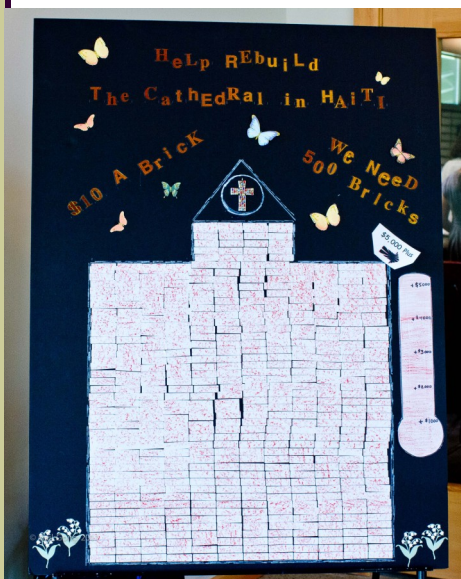 HeLp REbuiLd
The CathEdRal in HAiTI
$10 A BricK
We NeeD
500 Bricks
$5,000 Plus
+ $5000
+ $4000
+ $3000
+ $2000
+ $1000